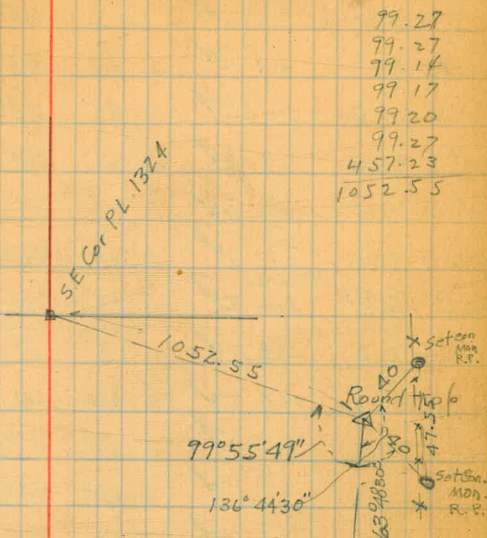 99.27
99.27
99.14
99.17
99.20
99.27
457.23
1052.55
S.E Cor P.L. 1324
1052.55
set con.
Mon
R.P.
40
Round
47.55
99°55'49"
40
136°44'30"
63°48'30"
Set Con.
Mon.
R.P.